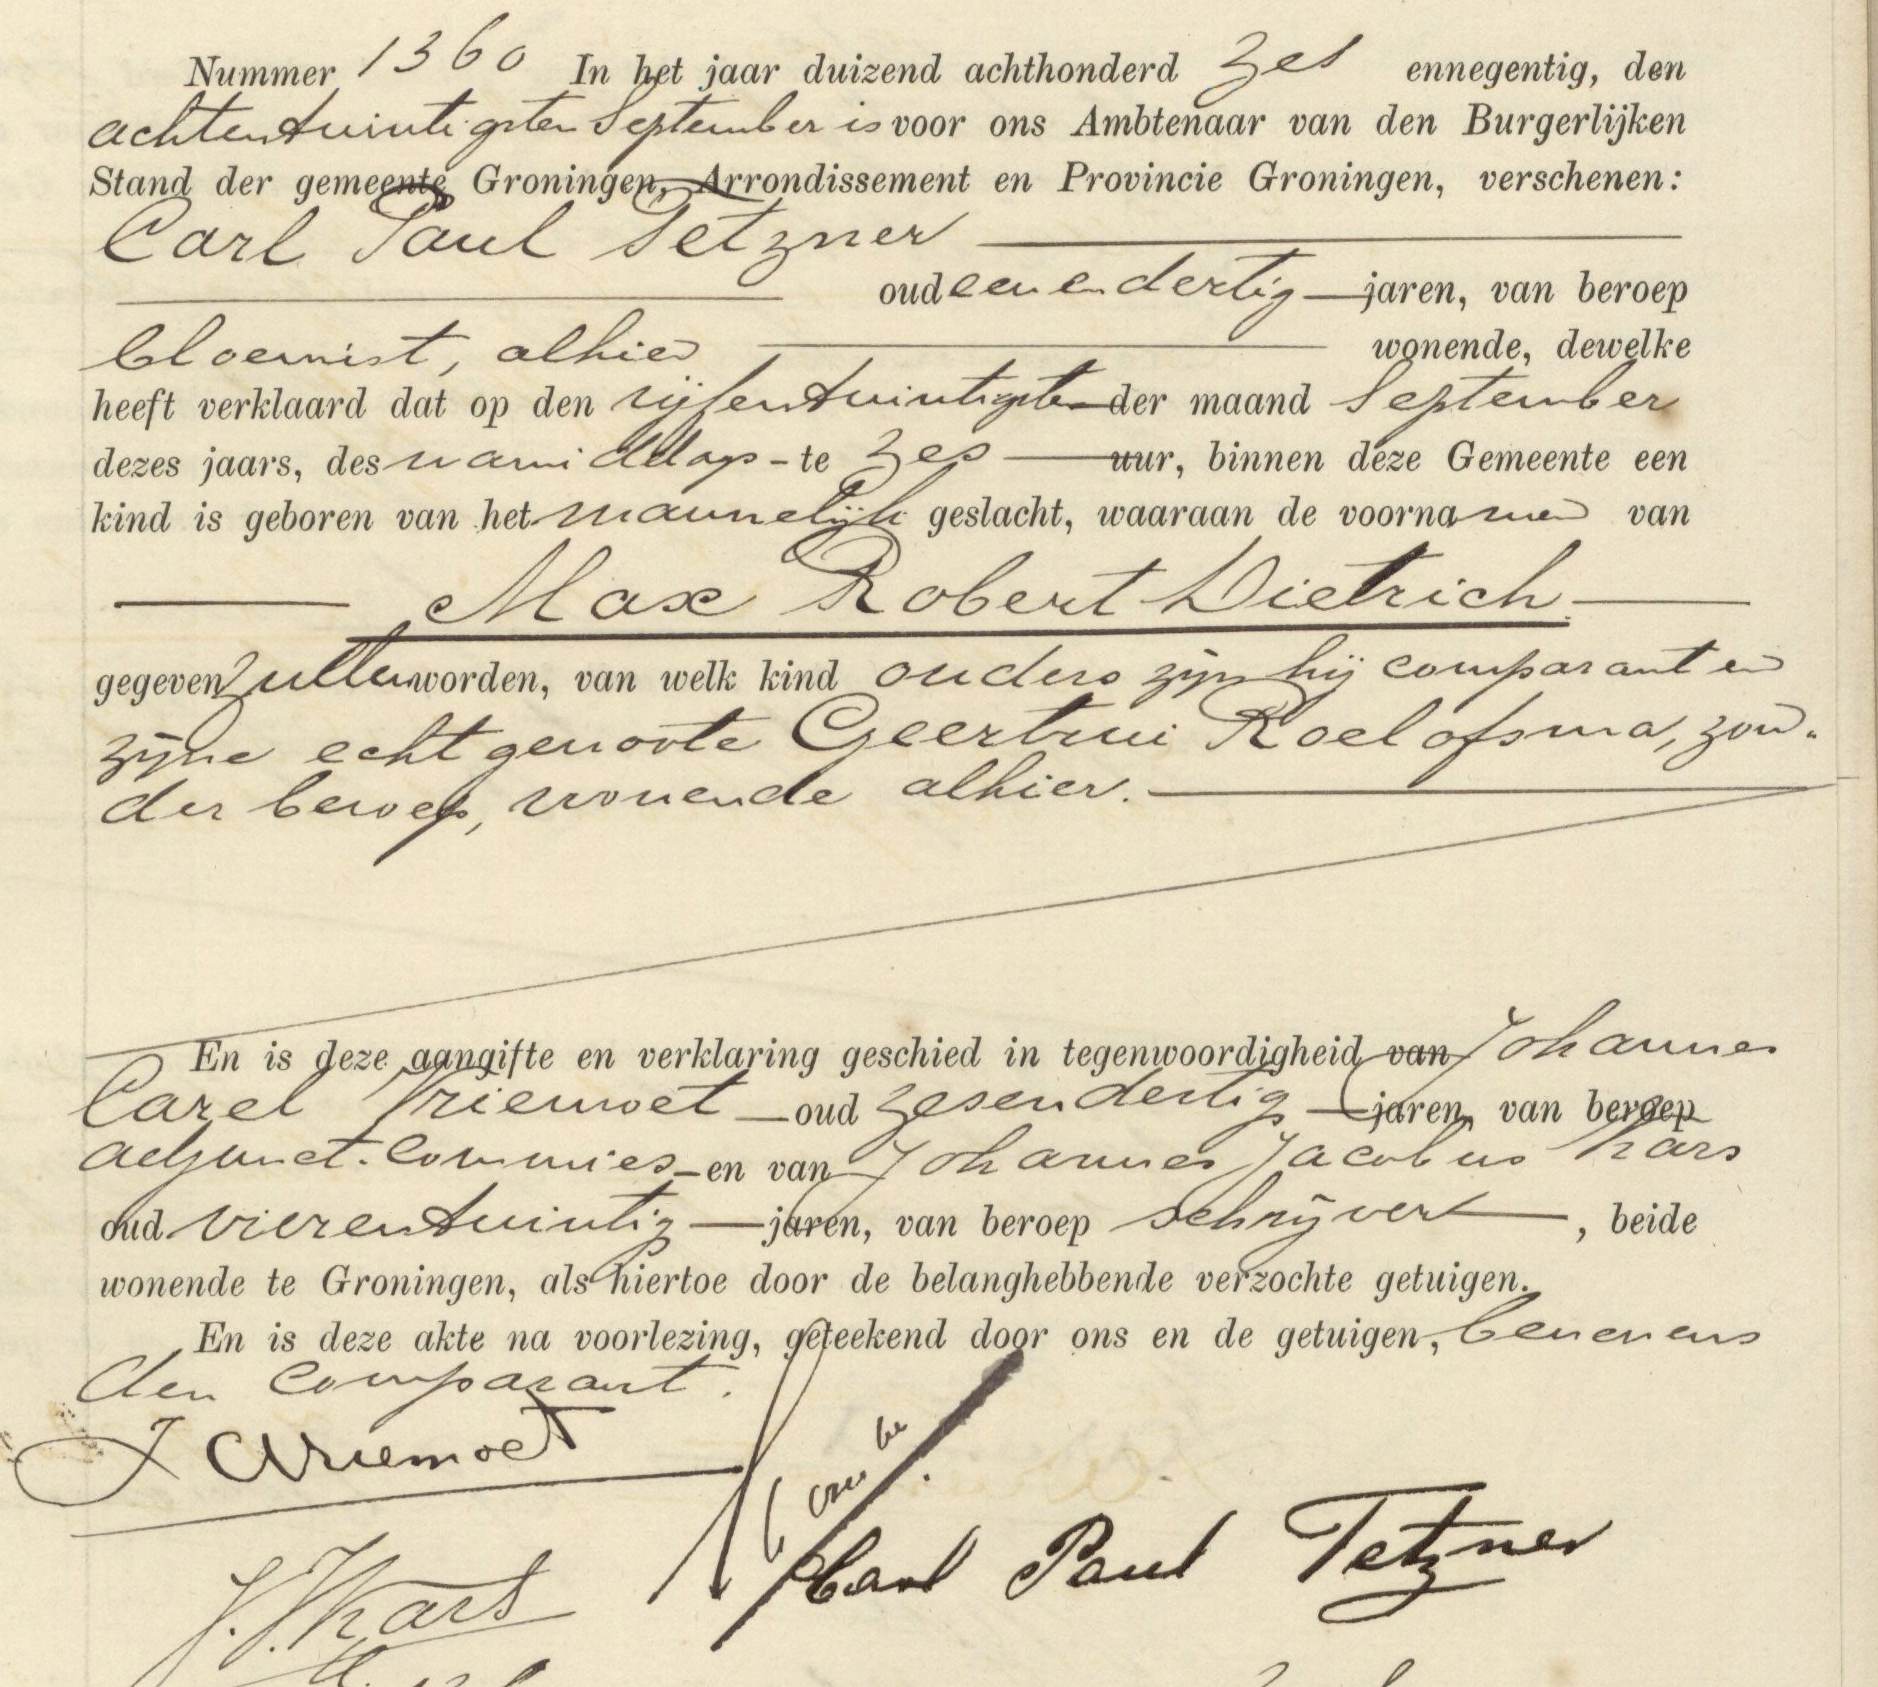 Nummer 1360 In het jaar duizend achthonderd zes ennegentig, den
achtentwintigsten September is voor ons Ambtenaar van den Burgerlijken
Stand der gemeente Groningen, Arrondissement en Provincie Groningen, verschenen:
Carl Paul Tetzner
oud eenendertig jaren, van beroep
bloemist, alhier wonende, dewelke
heeft verklaard dat op den vijfentwintigsten der maand September
dezes jaars, des namiddags te zes uur, binnen deze Gemeente een
kind is geboren van het mannelijk geslacht, waaraan de voornamen van
Max Robert Dietrich
gegeven zullen worden, van welk kind ouders zijn hij comparant en
zijne echtgenoote Geertrui Roelofsma, zon-
der beroep, wonende alhier.
En is deze aangifte en verklaring geschied in tegenwoordigheid van Johannes
Carel Vriemoet oud zesendertig jaren, van beroep
adjunct-commies en van Johannes Jacobus Kars
oud vierentwintig jaren, van beroep schrijver, beide
wonende te Groningen, als hiertoe door de belanghebbende verzochte getuigen.
En is deze akte na voorlezing, geteekend door ons en de getuigen, benevens
den comparant.
J C Vriemoet
Carl Paul Tetzner
J. J. Kars